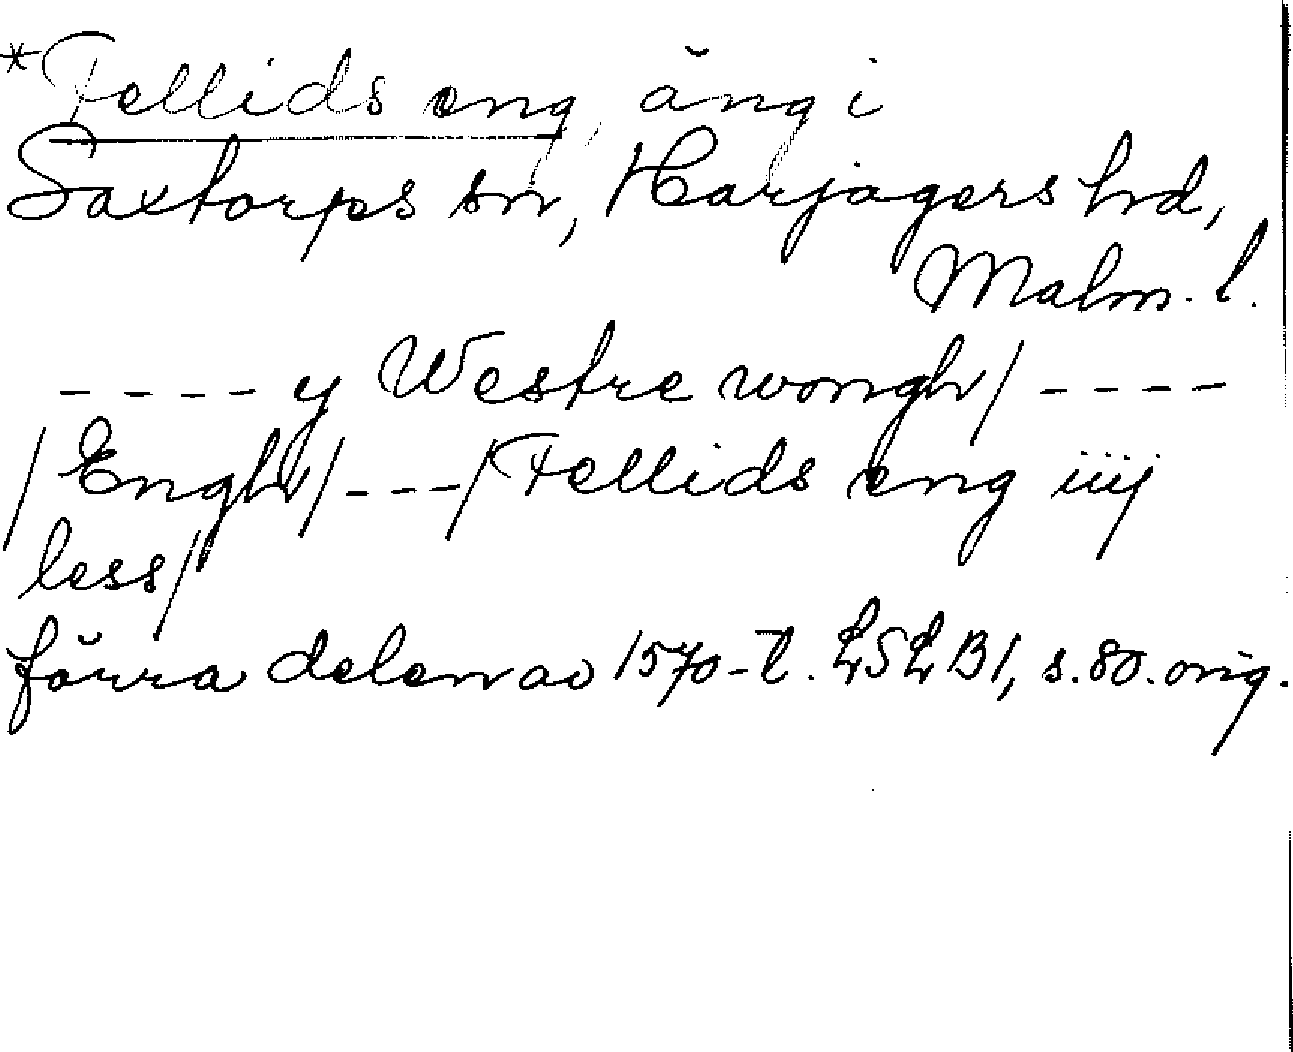 *Fellids eng, äng i
Saxtorps sn, Harjagers hd,
Malm. l.
---- y Westre wongh/ ----
/Engh/---/Fellids eng iiij
less/
förra delen av 1570-t. LSLB1, s. 80. orig.